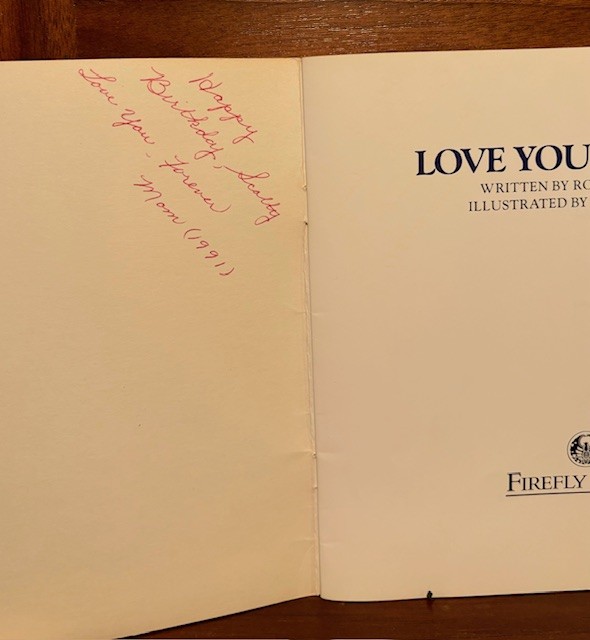 Happy
Birthday, Scotty
Love You, Forever
Mom (1991)
LOVE YOU
WRITTEN BY RO
ILLUSTRATED BY
FIREFLY